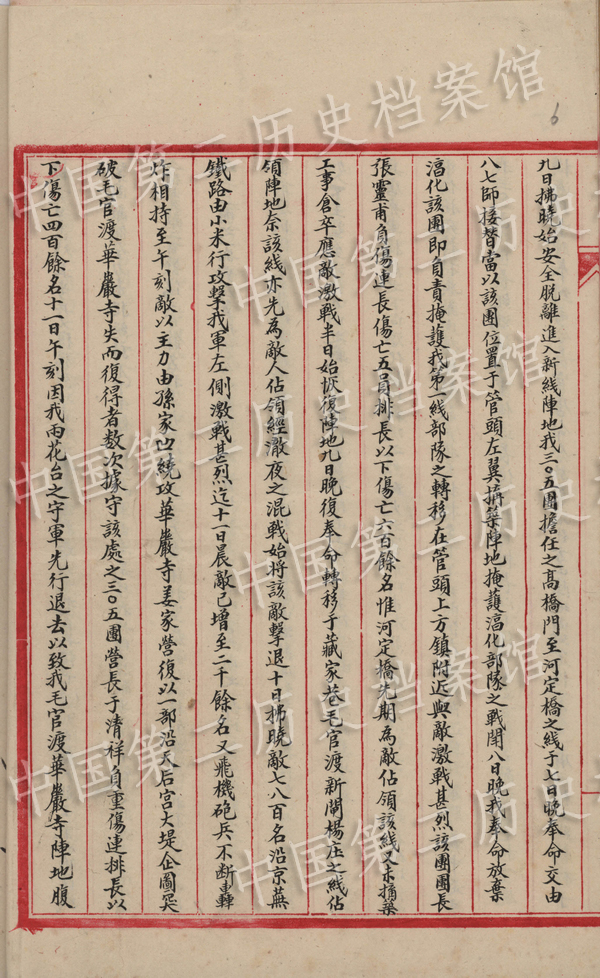 6
九日拂曉始安全脫離進入新线陣地我三〇五團擔任之高橋門至河定橋之线于七日晚奉命交由
八七師接替當以該團位置于管頭左翼搆築陣地掩護湻化部隊之戰鬥八日晚我奉命放棄
湻化該團即負責掩護我第一线部隊之轉移在管頭上方鎮附近與敵激戰甚烈該團團長
張靈甫負傷連長傷亡五員排長以下傷亡六百餘名惟河定橋先期為敵佔領該线又未搆築
工事倉卒應敵激戰半日始恢復陣地九日晚復奉命轉移于藏家巷毛官渡新閘楊庄之线佔
領陣地奈該线亦先為敵人佔領經澈夜之混戰始將該敵擊退十日拂曉敵七八百名沿京蕪
鐵路由小米行攻擊我軍左側激戰甚烈迄十一日晨敵已增至二千餘名又飛機砲兵不断轟
炸相持至午刻敵以主力由孫家凹繞攻華嚴寺姜家營復以一部沿天后宮大堤企圖突
破毛官渡華嚴寺失而復得者数次據守該處之三〇五團營長于清祥負重傷連排長以
下傷亡四百餘名十一日午刻因我雨花台之守軍先行退去以致我毛官渡華嚴寺陣地腹
中国第二历史档案馆
中国第二历史档案馆
中国第二历史档案馆
中国第二历史
中国第二历史
中国第二历史